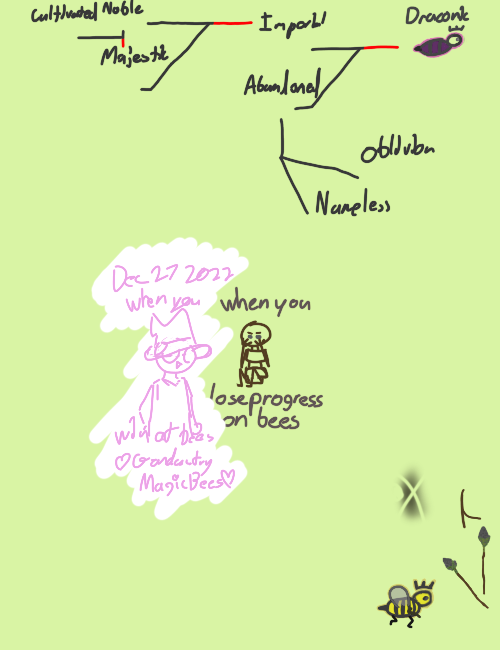 Cultivated Noble
Majestic
Imperial
Draconic
Abandoned
Oblivion
Nameless
Dec 27 2022
when you
win at bees
♡Grandaitry
MagicBees♡
when you
lose progress
on bees